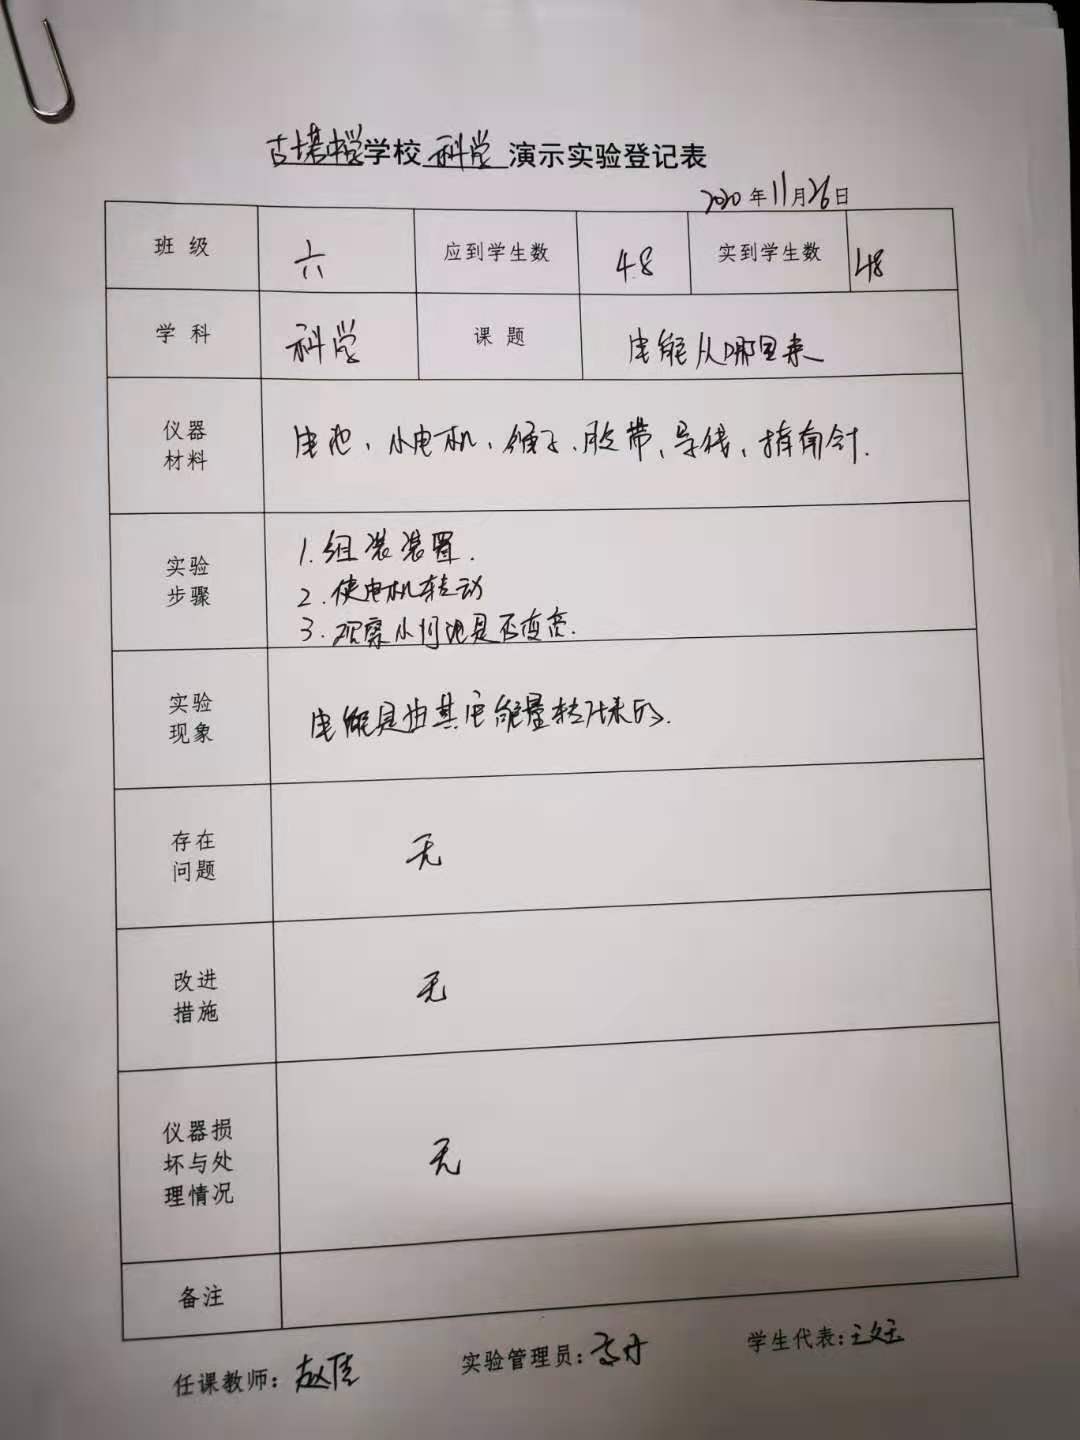 古堪中学学校 科学 演示实验登记表
2020年11月26日
班 级 六 应到学生数 48 实到学生数 48
学 科 科学 课 题 电能从哪里来
仪器
材料
电池、小电机、绳子、胶带、导线、指南针.
实验
步骤
1.组装装置.
2.使电机转动
3.观察小灯泡是否变亮.
实验
现象
电能是由其它能量转化来的.
存在
问题
无
改进
措施
无
仪器损
坏与处
理情况
无
备注
任课教师：赵佳 实验管理员： 学生代表：